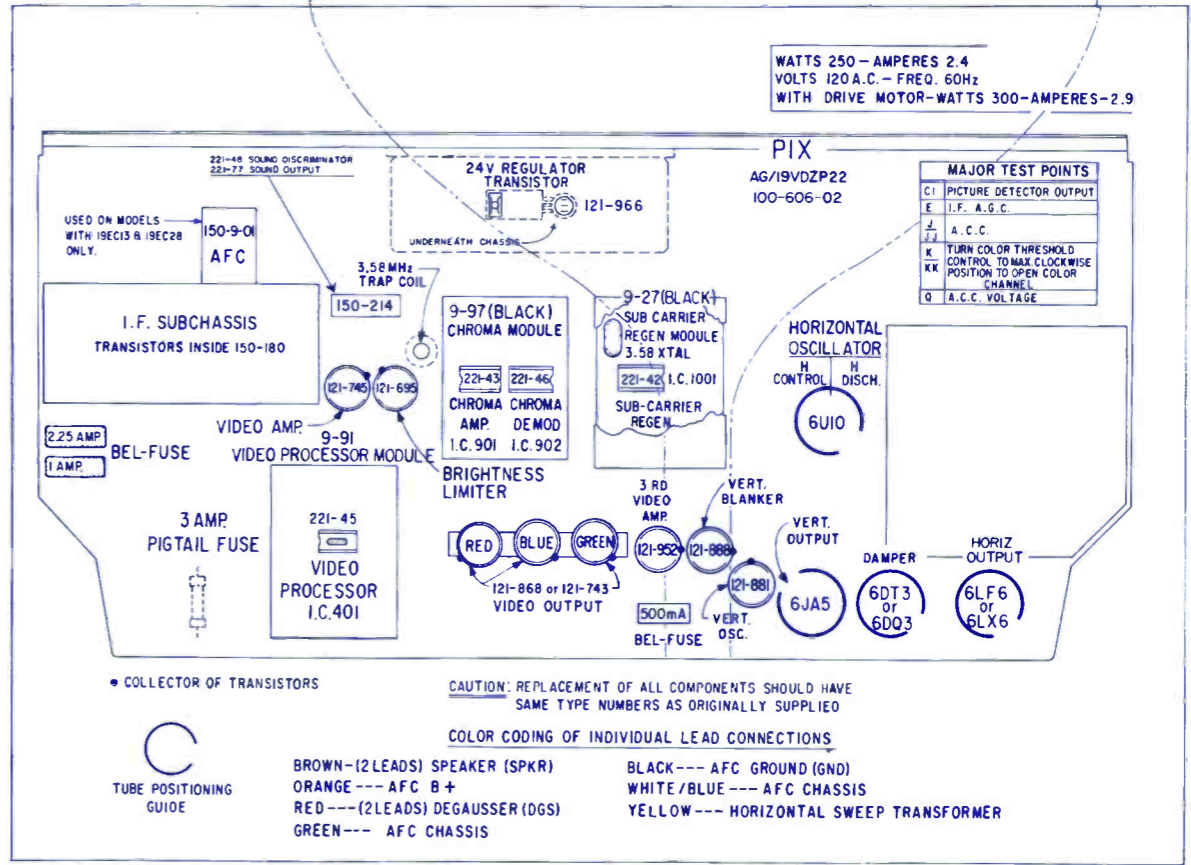 WATTS 250 – AMPERES 2.4
VOLTS 120 A.C. – FREQ. 60Hz
WITH DRIVE MOTOR-WATTS 300-AMPERES-2.9
PIX
AG/19VDZP22
100-606-02
MAJOR TEST POINTS
C1 PICTURE DETECTOR OUTPUT
E I.F. A.G.C.
J
JJ
A.C.C.
K
KK
TURN COLOR THRESHOLD
CONTROL TO MAX. CLOCKWISE
POSITION TO OPEN COLOR
CHANNEL
Q A.C.C. VOLTAGE
221-48 SOUND DISCRIMINATOR
221-77 SOUND OUTPUT
24V REGULATOR
TRANSISTOR
121-966
UNDERNEATH CHASSIS
USED ON MODELS
WITH 19EC13 & 19EC28
ONLY.
150-9-01
AFC
3.58 MHz
TRAP COIL
150-214
I.F. SUBCHASSIS
TRANSISTORS INSIDE 150-180
9-97 (BLACK)
CHROMA MODULE
221-43
221-46
CHROMA
AMP.
I.C. 901
CHROMA
DEMOD
I.C. 902
9-27 (BLACK)
SUB CARRIER
REGEN MODULE
3.58 XTAL
221-42
I.C. 1001
SUB-CARRIER
REGEN
HORIZONTAL
OSCILLATOR
H
CONTROL
H
DISCH.
6U10
121-745
121-695
VIDEO AMP.
9-91
VIDEO PROCESSOR MODULE
BRIGHTNESS
LIMITER
2.25 AMP
1 AMP.
BEL-FUSE
3 AMP.
PIGTAIL FUSE
221-45
VIDEO
PROCESSOR
I.C. 401
RED
BLUE
GREEN
121-868 or 121-743
VIDEO OUTPUT
3 RD
VIDEO
AMP.
121-952
VERT.
BLANKER
121-888
121-881
VERT.
OSC.
500mA
BEL-FUSE
VERT.
OUTPUT
6JA5
DAMPER
6DT3
or
6DQ3
HORIZ
OUTPUT
6LF6
or
6LX6
• COLLECTOR OF TRANSISTORS
CAUTION: REPLACEMENT OF ALL COMPONENTS SHOULD HAVE
SAME TYPE NUMBERS AS ORIGINALLY SUPPLIED
TUBE POSITIONING
GUIDE
COLOR CODING OF INDIVIDUAL LEAD CONNECTIONS
BROWN-(2 LEADS) SPEAKER (SPKR)
ORANGE --- AFC B+
RED---(2 LEADS) DEGAUSSER (DGS)
GREEN--- AFC CHASSIS
BLACK--- AFC GROUND (GND)
WHITE/BLUE --- AFC CHASSIS
YELLOW--- HORIZONTAL SWEEP TRANSFORMER